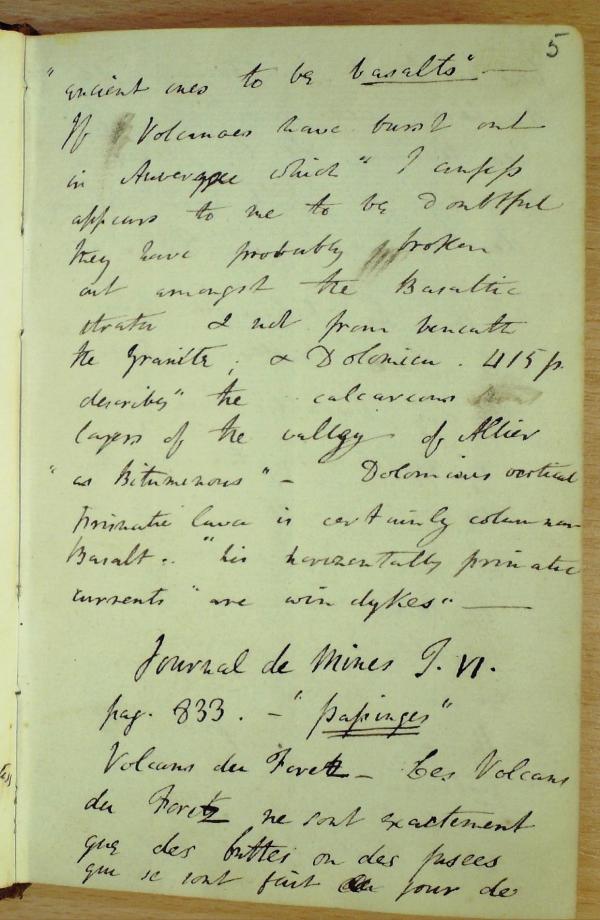 5
"ancient ones to be basalts" —
If Volcanoes have burst out
in Auvergne which "I confess
appears to me to be doubtful
they have probably broken
out amongst the Basaltic
strata & not from beneath
the Granite; & Dolomieu. 415 p.
describes" the calcareous
layers of the valley of Allier
"as Bitumenous" - Dolomieus vertical
prismatic lava is certainly columnar
Basalt.. "his horizontally prismatic
currents" are whin dykes" —
Journal de Mines T. VI.
pag. 833. - "
Volcans du Foretz - Les Volcans
du Foretz ne sont exactement
que des buttes ou des fusees
que se sont fait jour de